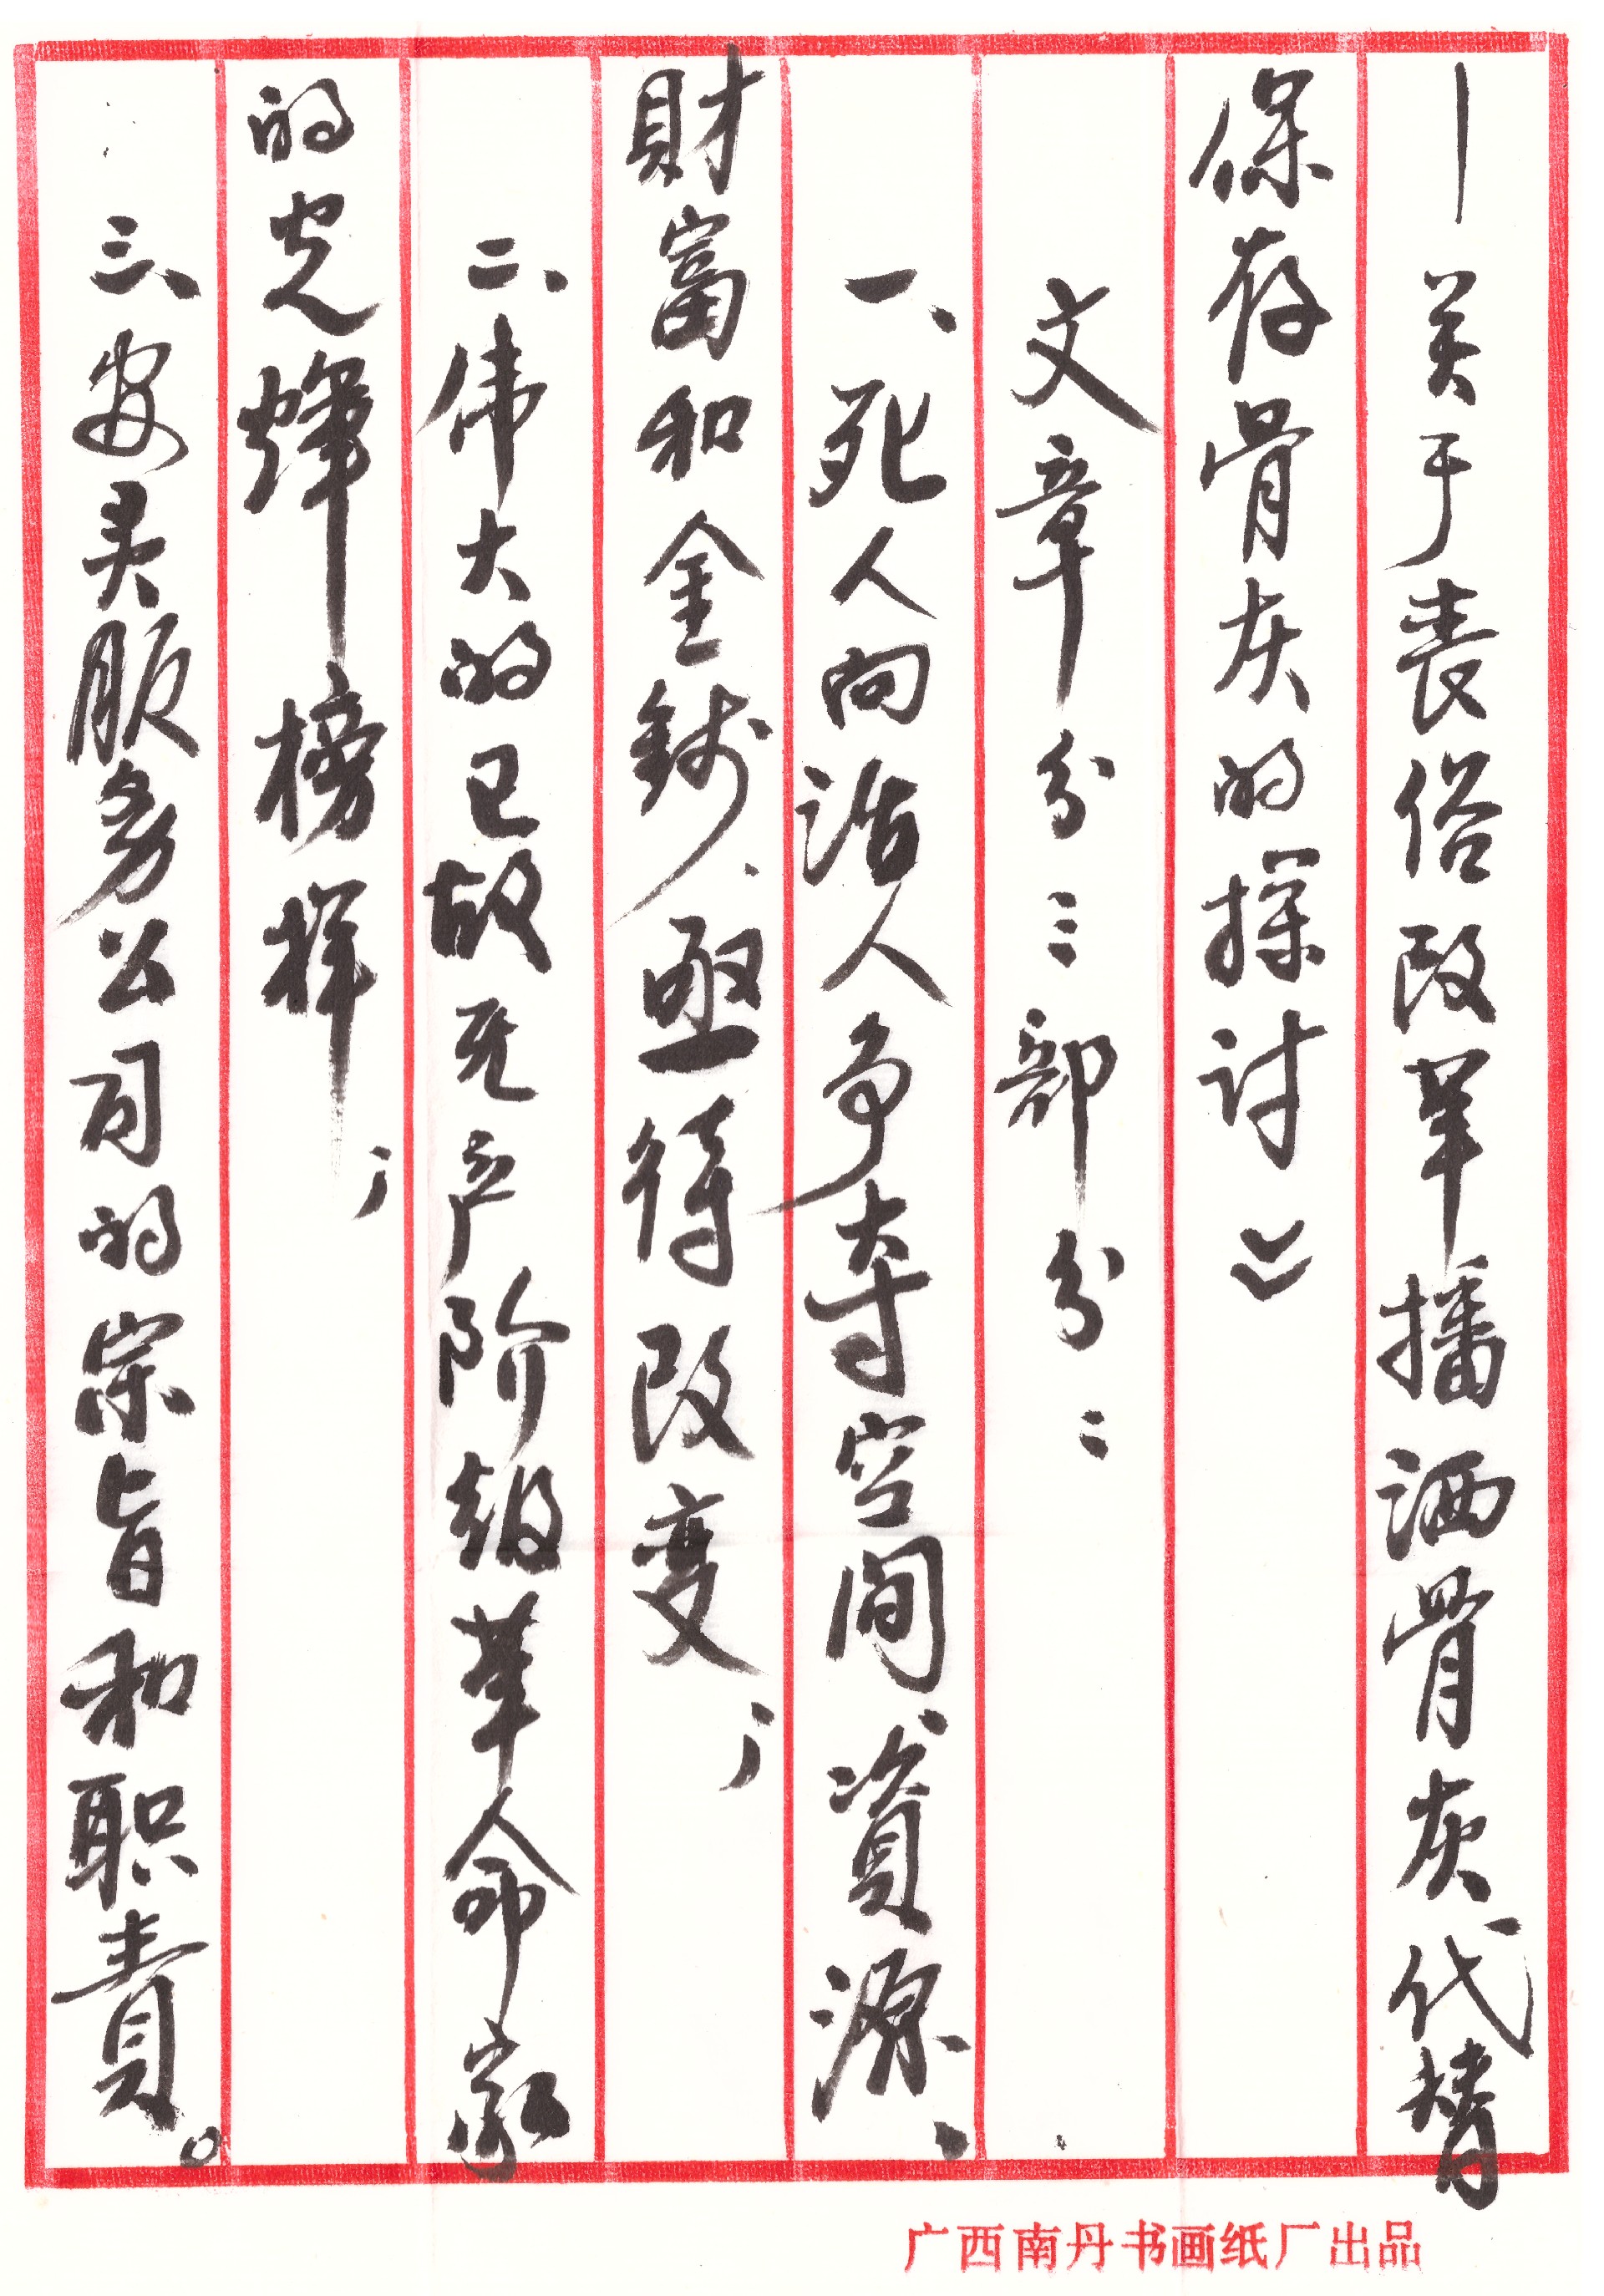 —关于丧俗改革播洒骨灰代替
保存骨灰的探讨》
文章分三部分：
一、死人向活人争夺空间、資源、
財富和金錢、亟待改变；
二、伟大的已故无产阶级革命家
的光輝榜样；
三、安灵服务公司的宗旨和职責。
广西南丹书画纸厂出品